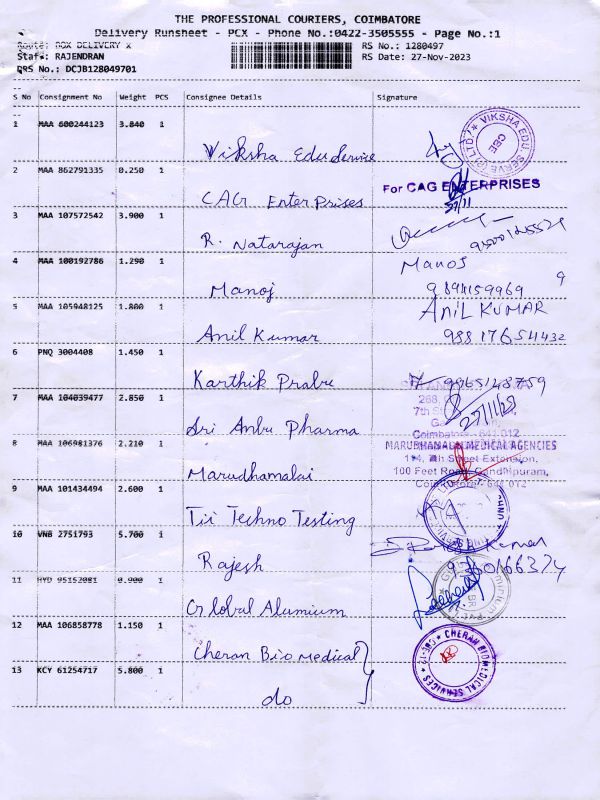 THE PROFESSIONAL COURIERS, COIMBATORE
Delivery Runsheet - PCX - Phone No.:0422-3505555 - Page No.:1
Route: BOX DELIVERY x
RS No.: 1280497
Staff: RAJENDRAN
RS Date: 27-Nov-2023
DRS No.: DCJB128049701
S No Consignment No Weight PCS Consignee Details Signature
1 MAA 600244123 3.840 1 Viksha Edu Service
VIKSHA EDU SERVE (P) LTD. CBE
2 MAA 862791335 0.250 1 CAG Enterprises
For CAG ENTERPRISES
27/11
3 MAA 107572542 3.900 1 R. Natarajan
4 MAA 100192786 1.290 1 Manoj
Manoj
9894159969
5 MAA 105948125 1.800 1 Anil Kumar
AniL KUMAR
98817654432
6 PNQ 3004408 1.450 1 Karthik Prabu
9965148759
7 MAA 104039477 2.850 1 Sri Anbu Pharma
268,
7th
Coimbatore - 641 012
27/11/23
8 MAA 106981376 2.210 1 Marudhamalai
MARUDHAMALAI MEDICAL AGENCIES
114, 7th Street Extension,
100 Feet Road, Gandhipuram,
Coimbatore - 641 012
9 MAA 101434494 2.600 1 Tii Techno Testing
10 VNB 2751793 5.700 1 Rajesh
Kumar
9760166374
11 HYD 95152081 0.900 1 Global Alumium
12 MAA 106858778 1.150 1 Cheran Bio Medical
CHERAN BIOMEDICAL SERVICES CBE-12
13 KCY 61254717 5.800 1 do